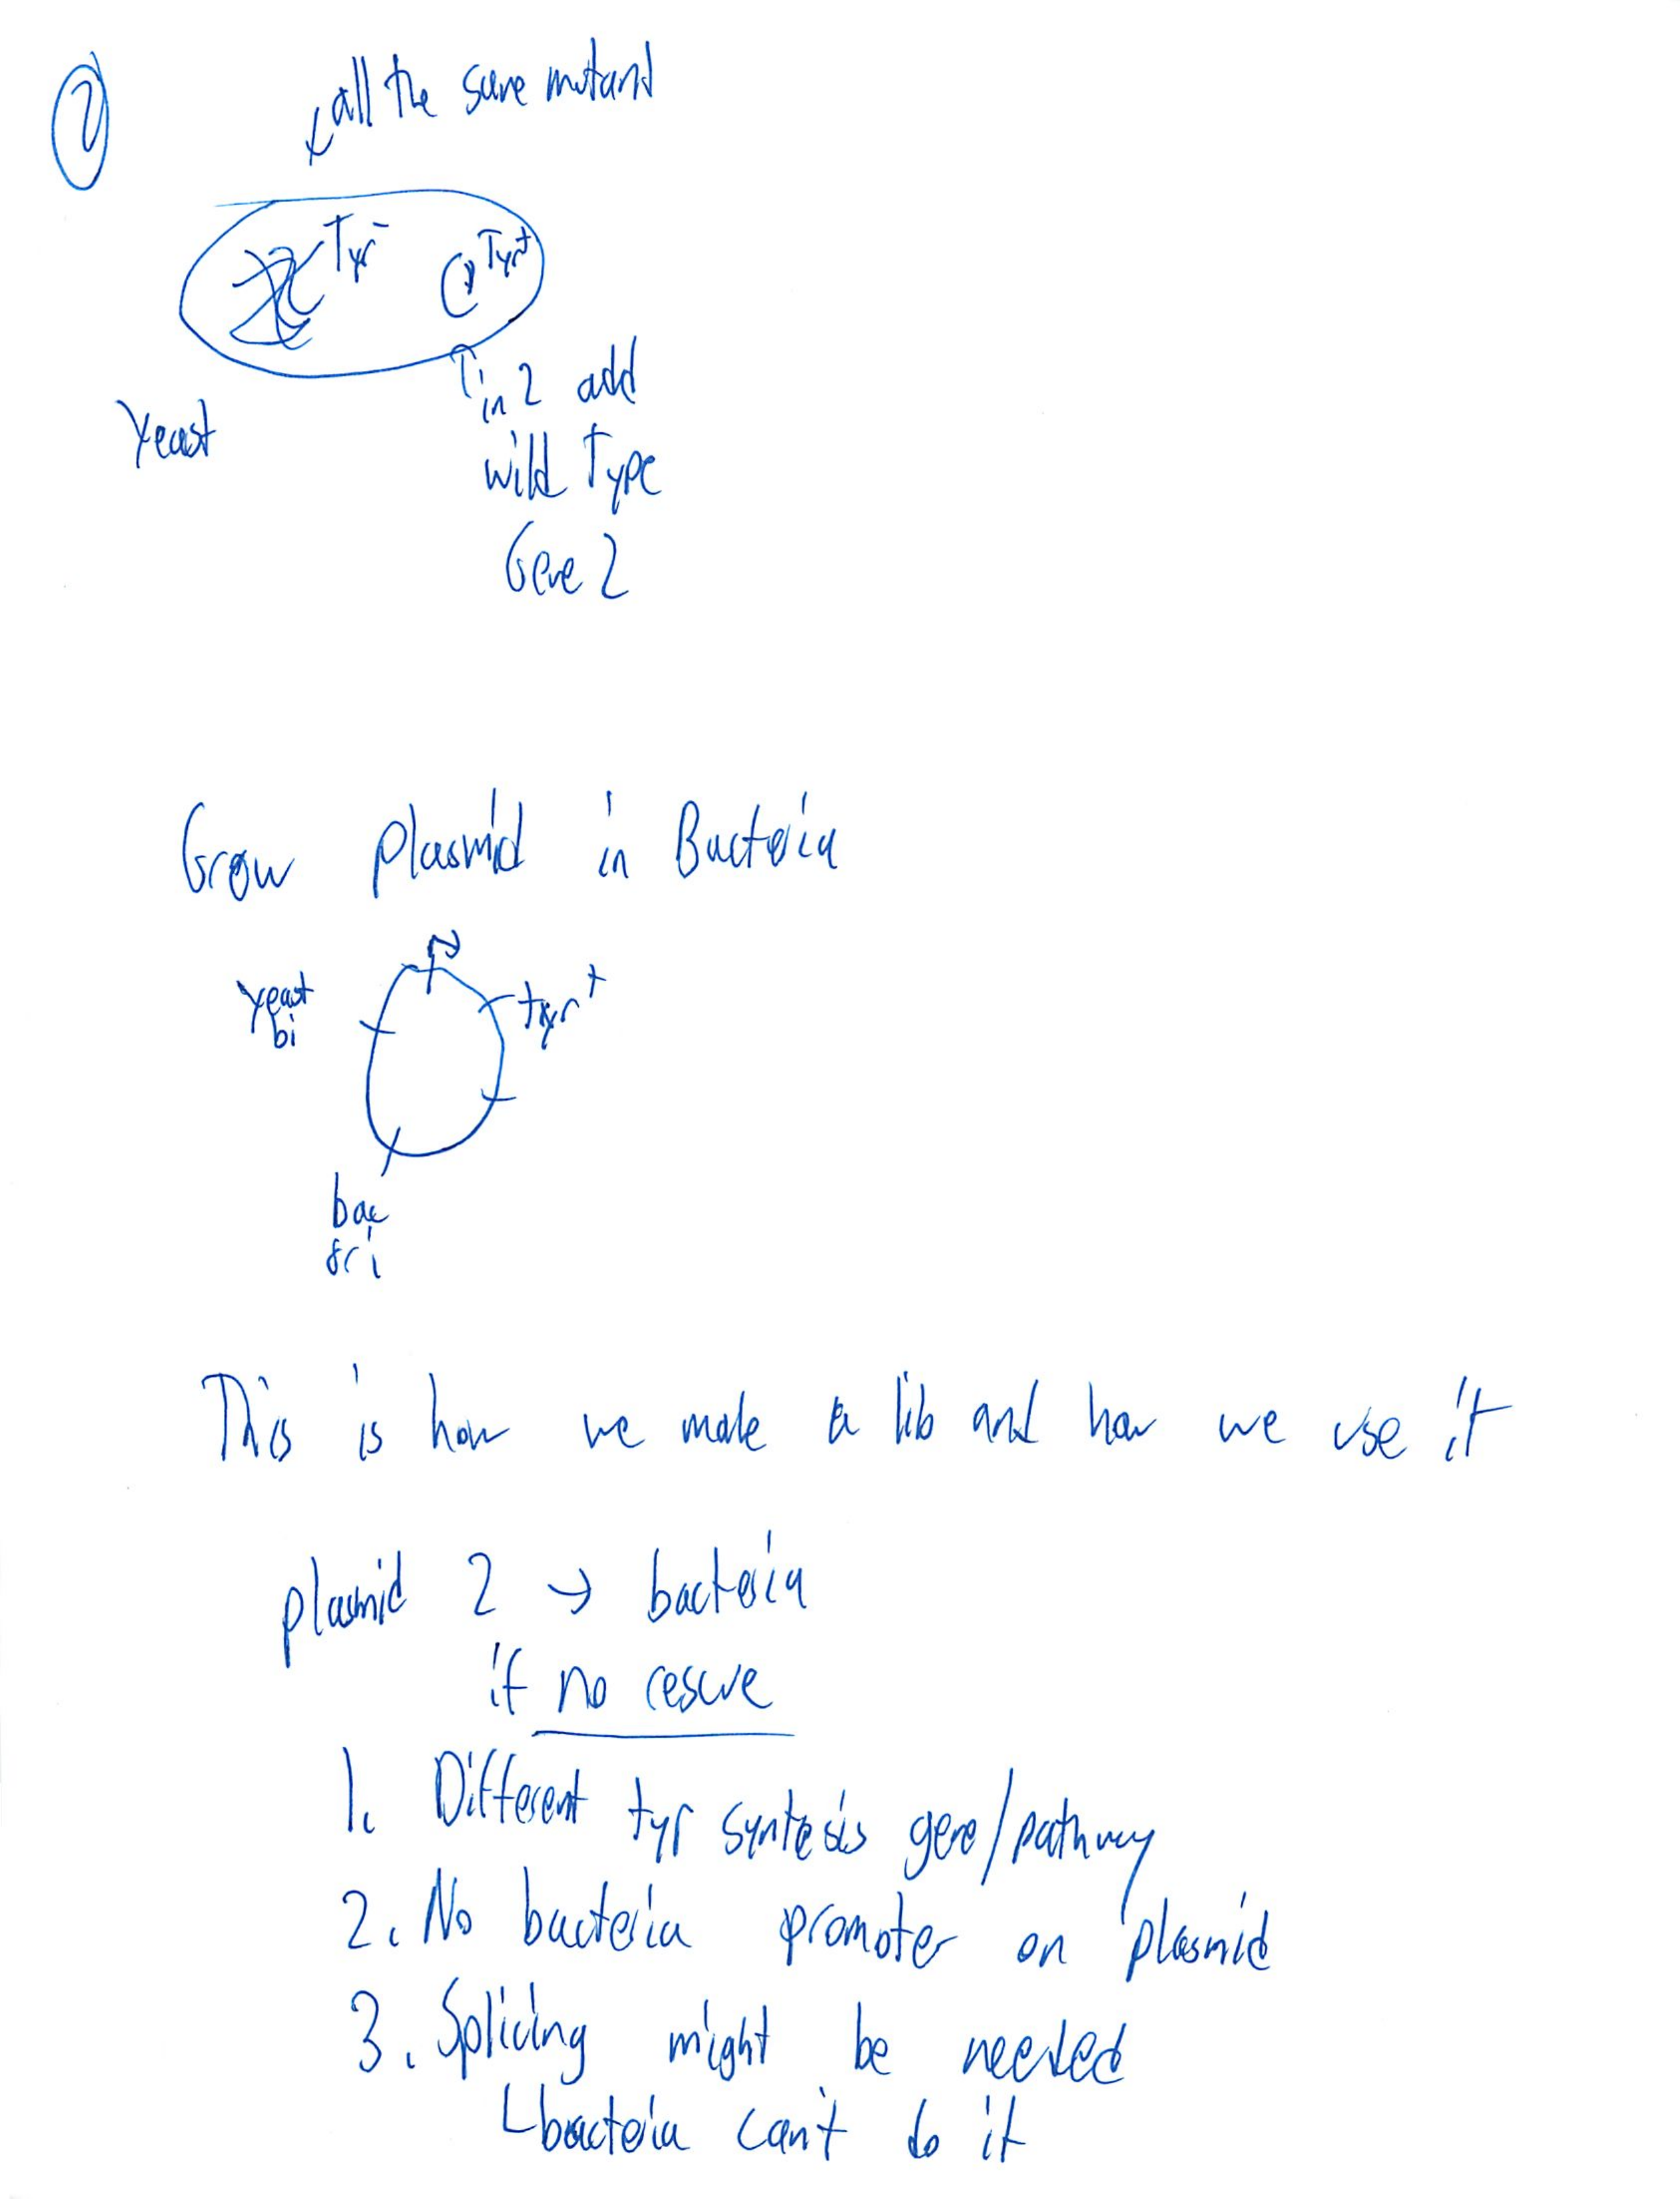 2
all the same mutant
Tyr-
Tyr+
in 2 add
wild Type
Gene 2
Yeast
Grow plasmid in Bacteria
yeast
tyr+
bac
ori
This is how we make a lib and how we use it
plasmid 2 → bacteria
if no rescue
1. Different tyr syntesis gene/pathway
2. No bacteria promoter on plasmid
3. Splicing might be needed
bacteria can't do it